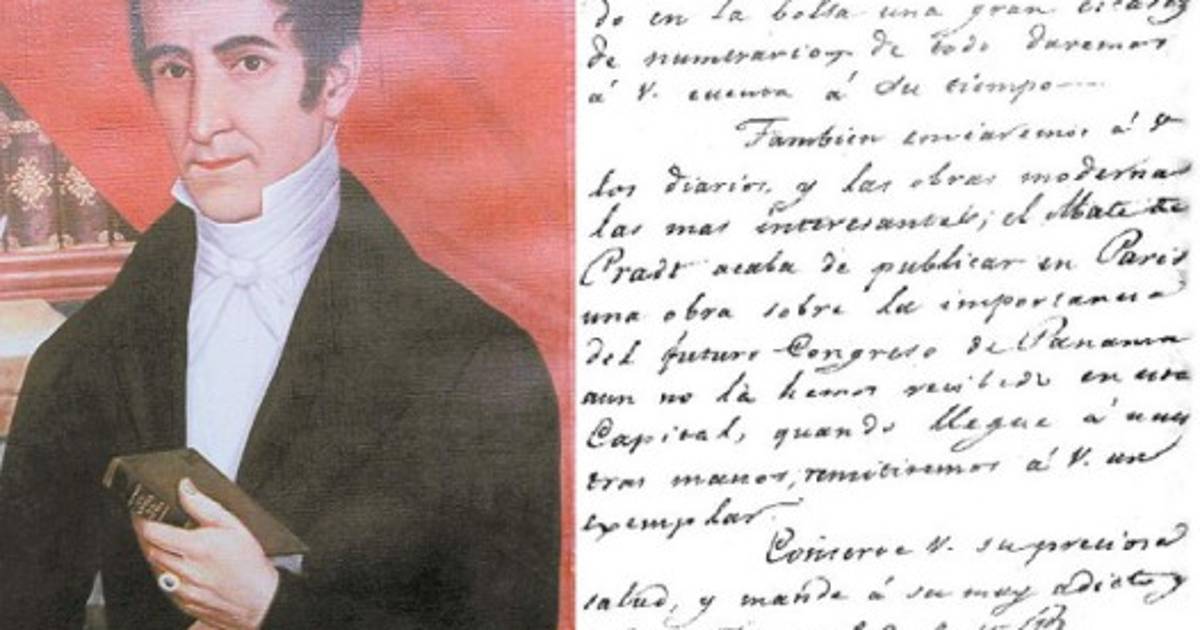 do en la bolsa una gran escasez
de numerario y de todo daremos
á V. cuenta á su tiempo
Tambien enviaremos á V
los diarios, y las obras modernas
las mas interesantes; el Abate de
Pradt acaba de publicar en Paris
una obra sobre la importancia
del futuro Congreso de Panama
aun no la hemos recibido en esta
Capital, quando llegue á nues
tras manos, remitiremos á V. un
exemplar.
Conserve V. su preciosa
salud, y mande á su muy adicto y